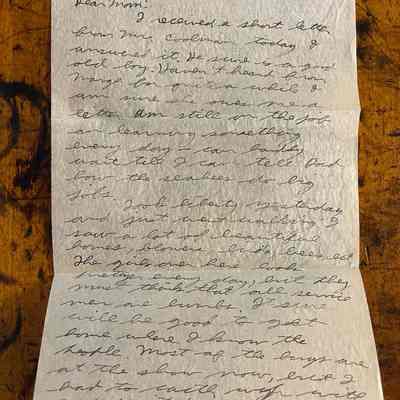 Dear Mom:
I received a short letter
from Mr. Coolman today &
answered it. He sure is a good
old boy. Haven't heard from
Marge for quite a while I
am sure she owes me a
letter. Am still on the job
an learning something
every day - can hardly
wait till I can tell Dad
how the seabees do big
jobs.
Took liberty yesterday
and just went walking I
saw a lot of beautiful
homes, flowers
The girls over here look
pretty every day, but they
must think that all service
men are bums. I sure
will be good to get
home where I know the
people. Most of the boys are
at the show now, but I
had to with